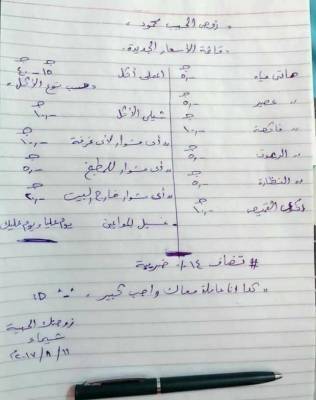 زوجى الحبيب محمود
قائمة الأسعار الجديدة
هاتى مياه ٥,- ج
" عصير ٥,- ج
" فاكهة ١٠,- ج
" الريموت ٥,- ج
" النظارة ٥,- ج
اكوى القميص ١٠,- ج
اعملى أكل ١٥ - ٤٠ ج
حسب نوع الأكل
شيلى الأكل ١٠,- ج
أى مشوار لأى غرفة ١٠,- ج
أى مشوار للمطبخ ٥,- ج
أى مشوار خارج البيت ٢٠,- ج
غسيل المواعين يوم عليا ويوم عليك
# تضاف ١٤٪ ضريبة
كدا انا عاملة معاك واجب كبير
زوجتك الحبيبة
شيماء
٢٠١٧/٨/١١